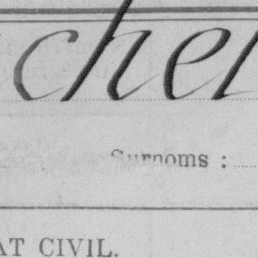 chel
Surnoms :
AT CIVIL.